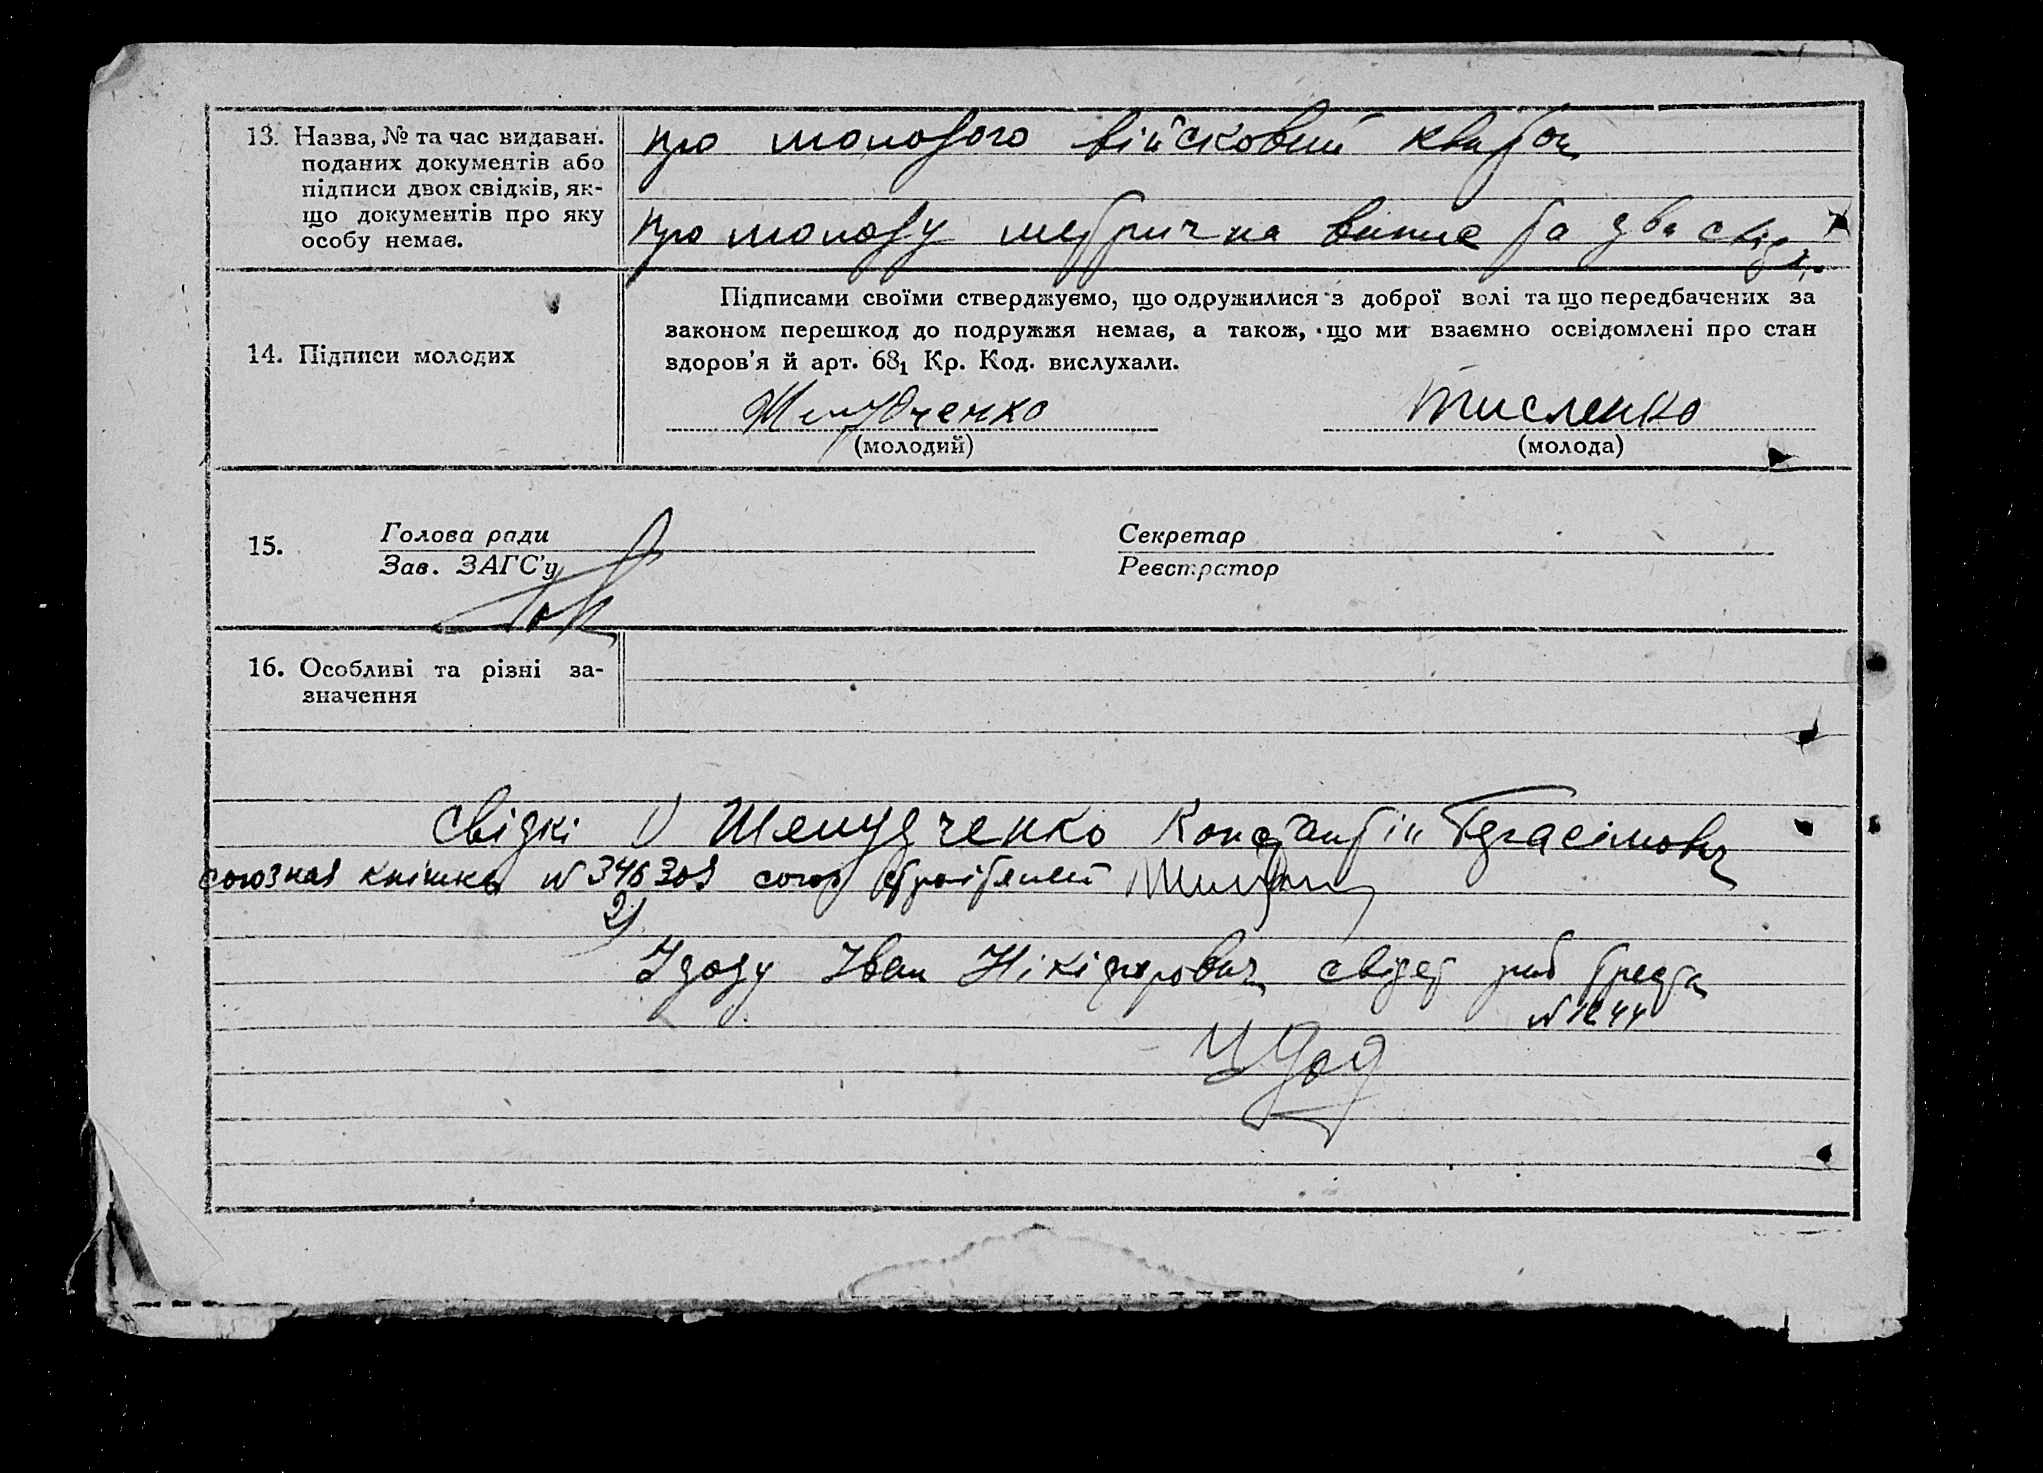 13. Назва, № та час видаван.
поданих документів або
підписи двох свідків, як-
що документів про яку
особу немає.
про молодого військовий квиток
про молоду метрична випис та два свідк.
14. Підписи молодих
Підписами своїми стверджуємо, що одружилися з доброї волі та що передбачених за
законом перешкод до подружжя немає, а також, що ми взаємно освідомлені про стан
здоров'я й арт. 68₁ Кр. Код. вислухали.
Тисленко
(молодий)
(молода)
15.
Голова ради
Зав. ЗАГС'у
Секретар
Реєстратор
16. Особливі та різні за-
значення
свідкі 1) Шелудченко Константін Герасімович
союзная кніжка № 346301 союз строітелей
2)
Удоду Іван Нікіфорович свідет
№ 1244
Удод